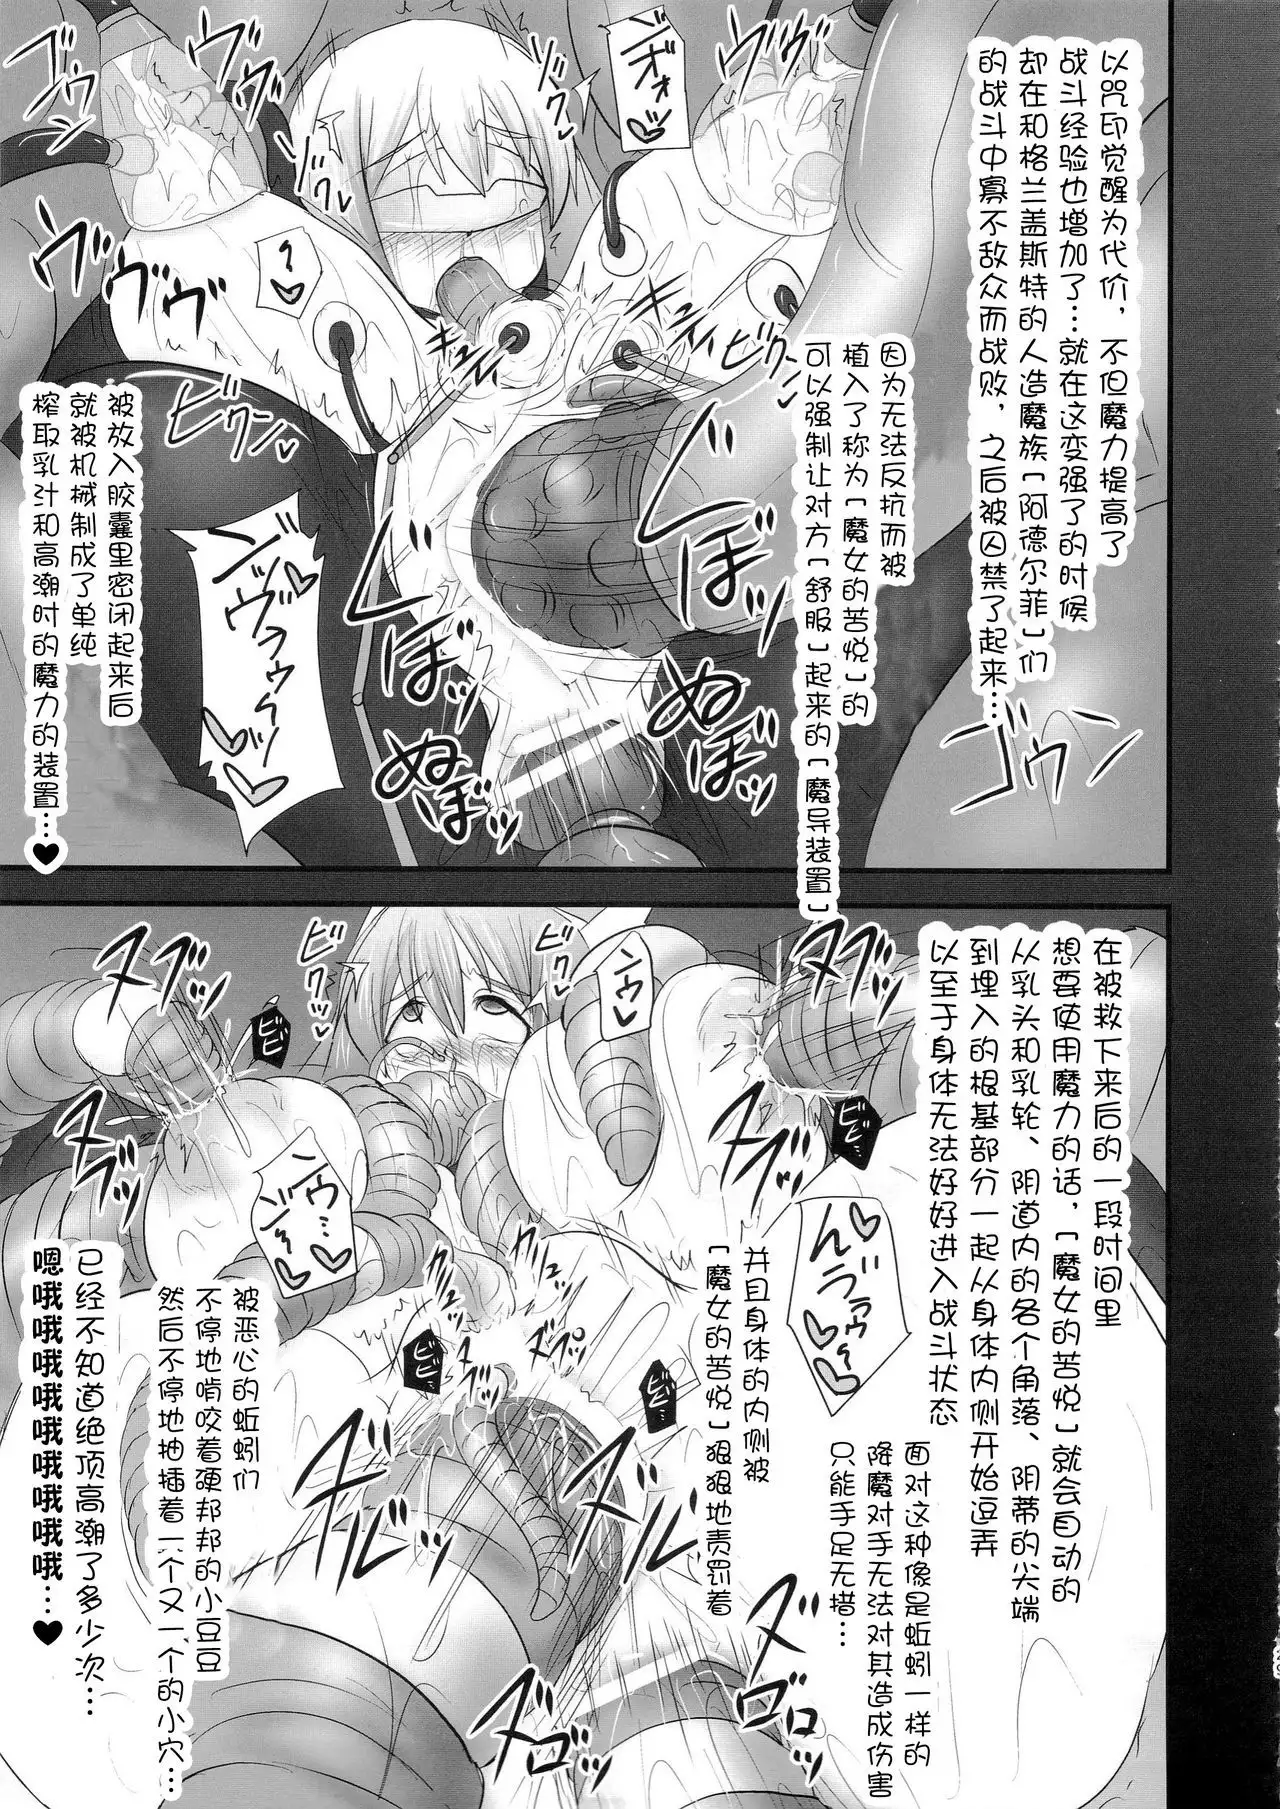 以咒印觉醒为代价，不但魔力提高了
战斗经验也增加了…就在这变强了的时候
却在和格兰盖斯特的人造魔族「阿德尔菲」们
的战斗中寡不敌众而战败，之后被囚禁了起来…
因为无法反抗而被
植入了称为「魔女的苦悦」的
可以强制让对方「舒服」起来的「魔导装置」
被放入胶囊里密闭起来后
就被机械制成了单纯
榨取乳汁和高潮时的魔力的装置…♥
ゴウン
ヴヴヴ
ドクッ
ヴヴヴヴ
ゴウン
ビクンッ
ビクンッ
じぼ
じぼ
ぬぼ
ぬぼ
在被救下来后的一段时间里
想要使用魔力的话，「魔女的苦悦」就会自动的
从乳头和乳轮、阴道内的各个角落、阴蒂的尖端
到埋入的根基部分一起从身体内侧开始逗弄
以至于身体无法好好进入战斗状态
面对这种像是蚯蚓一样的
降魔对手无法对其造成伤害
只能手足无措…
并且身体的内侧被
「魔女的苦悦」狠狠地责罚着
被恶心的蚯蚓们
不停地啃咬着硬邦邦的小豆豆
然后不停地抽插着一个又一个的小穴…
已经不知道绝顶高潮了多少次…
嗯哦哦哦哦哦哦哦哦哦…♥
ヌブッ
ビクッ
ビクッ
ヌブッ
ビビ
ビビ
ビビ
ビビ
ズルルッ
ズルルッ
ズゾゾッ
ズゾロロロ